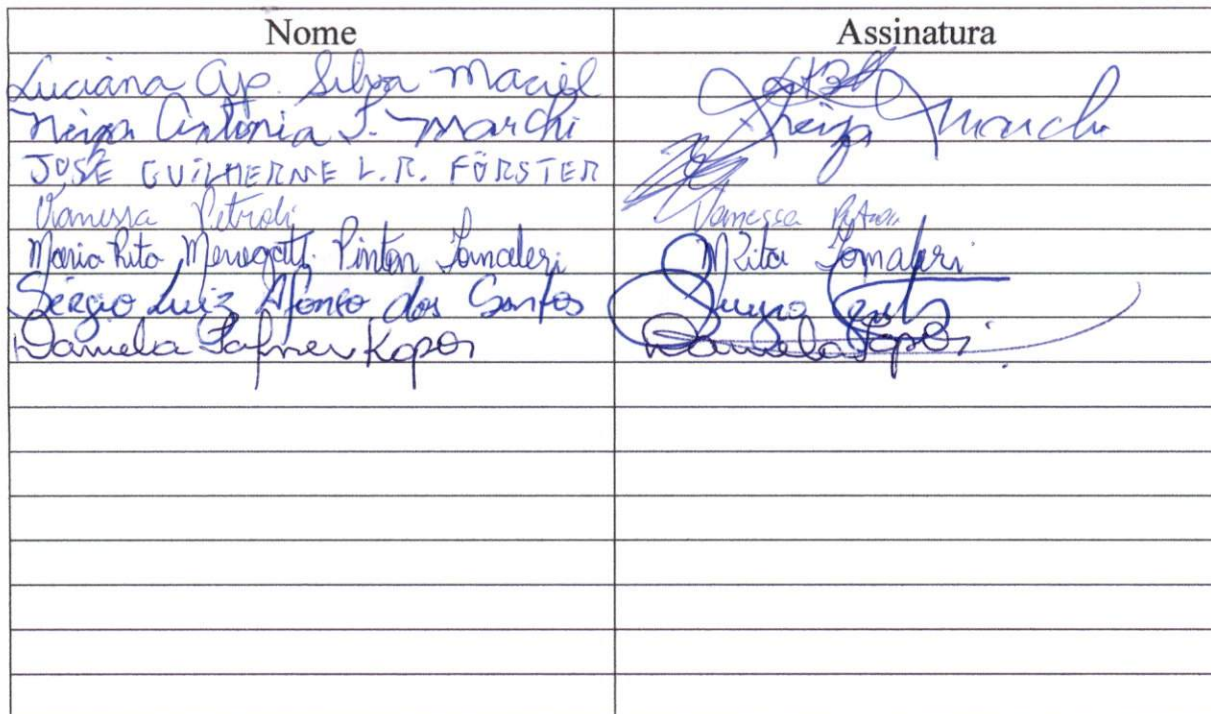 Nome Assinatura
Luciana Ap. Silva Maciel
Neiza Antônia J. Marchi Neiza Marchi
JOSÉ GUILHERME L.R. FÖRSTER
Vanessa Petroli Vanessa
Maria Rita Menegatti Pinton Tomaleri MRita Tomaleri
Sérgio Luiz Afonso dos Santos
Daniela Kapor Daniela Kapor